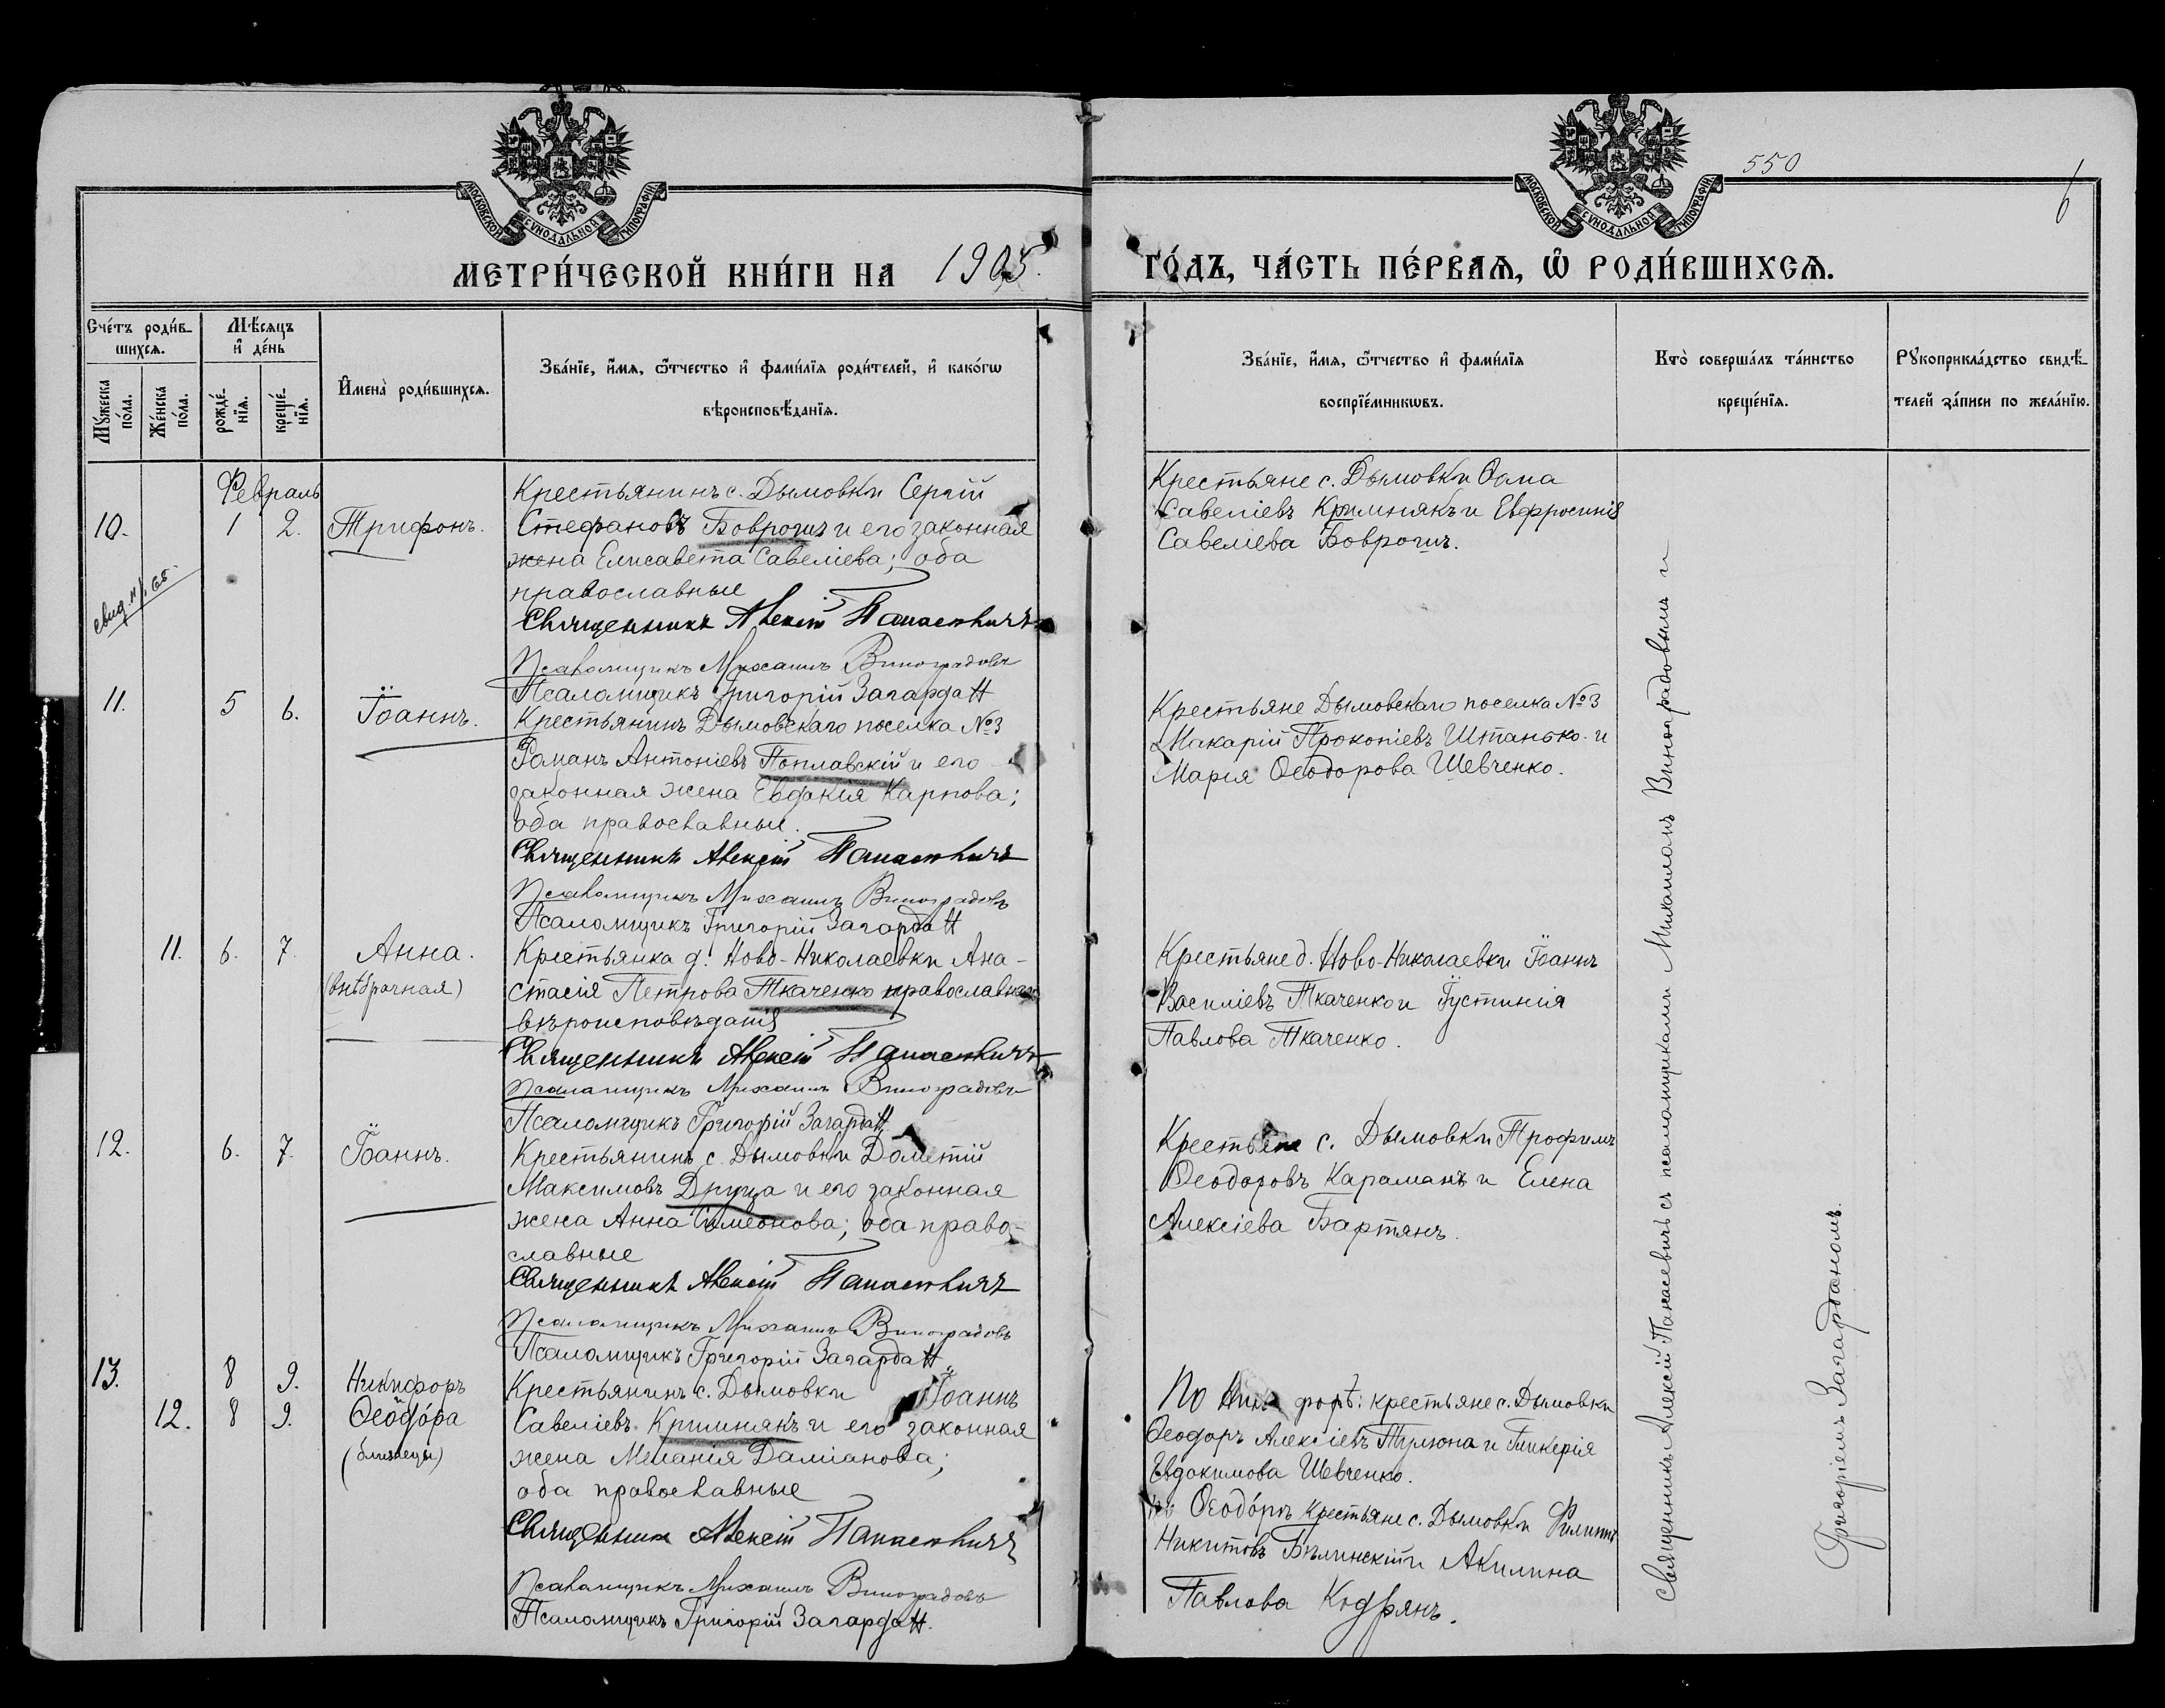 МОСКОВСКОЙ СУНОДАЛЬНОЙ ТИПОГРАФІИ
МОСКОВСКОЙ СУНОДАЛЬНОЙ ТИПОГРАФІИ
550
6
МЕТРИ́ЧЕСКОЙ КНИ́ГИ НА 1905.
ГО́ДЪ, ЧА́СТЬ ПЕ́РВАѦ, Ѽ РОДИ́ВШИХСѦ.
Сче́тъ роди́в-
шихсѧ.
Мꙋ́жеска по́ла.
Же́нска по́ла.
Мѣ́сяцъ
и҆ де́нь
рожде́-
нїѧ.
креще́-
нїѧ.
И҆мена̀ роди́вшихсѧ.
Зва́нїе, и҆́мѧ, ѻ҆́тчество и҆ фами́лїѧ роди́телей, и҆ како́гѡ
вѣроисповѣ́данїѧ.
Зва́нїе, и҆́мѧ, ѻ҆́тчество и҆ фами́лїѧ
воспрїе́мникѡвъ.
Кто̀ соверша́лъ та́инство
креще́нїѧ.
Рꙋкоприкла́дство свидѣ́-
телей за́писи по жела́нїю.
Февраль
10. 1 2. Трифонъ.
Крестьянинъ с. Дымовки Сергій
Стефановъ Боврогич и его законная
жена Елисавета Савеліева; оба
православные
Священникъ Алексій Панасевичъ
Псаломщикъ Михаилъ Виноградовъ
Псаломщикъ Григорій Загарданъ
Крестьяне с. Дымовки Ѳома
Савеліевъ Кримнякъ и Евфросинія
Савеліева Боврогич.
свид.
11. 5 6. Іоаннъ.
Крестьянинъ Дымовскаго поселка №3
Романъ Антоніевъ Поплавскій и его
законная жена Евдокія Карпова;
оба православные.
Священникъ Алексій Панасевичъ
Псаломщикъ Михаилъ Виноградовъ
Псаломщикъ Григорій Загарданъ
Крестьяне Дымовскаго поселка №3
Макарій Прокопіевъ Штанько и
Марія Ѳеодорова Шевченко.
11. 6. 7. Анна.
(внѣбрачная)
Крестьянка д. Ново-Николаевки Ана-
стасія Петрова Ткаченко православнаго
вѣроисповѣданія
Священникъ Алексій Панасевичъ
Псаломщикъ Михаилъ Виноградовъ
Псаломщикъ Григорій Загарданъ
Крестьяне д. Ново-Николаевки Іоаннъ
Василіевъ Ткаченко и Іустинія
Павлова Ткаченко.
12. 6. 7. Іоаннъ.
Крестьянинъ с. Дымовки Дометій
Максимовъ Друца и его законная
жена Анна Симеонова; оба право-
славные
Священникъ Алексій Панасевичъ
Псаломщикъ Михаилъ Виноградовъ
Псаломщикъ Григорій Загарданъ
Крестьяне с. Дымовки Трофимъ
Ѳеодоровъ Караманъ и Елена
Алексіева Бартянъ.
13. 8 9. Никифоръ
12. 8 9. Ѳеодо́ра
(близнецы)
Крестьянинъ с. Дымовки Іоаннъ
Савеліевъ Кримнякъ и его законная
жена Меланія Даміанова;
оба православные
Священникъ Алексій Панасевичъ
Псаломщикъ Михаилъ Виноградовъ
Псаломщикъ Григорій Загарданъ.
По Никифорѣ: крестьяне с. Дымовки
Ѳеодоръ Алексіевъ и Гликерія
Евдокимова Шевченко.
по Ѳеодо́рѣ крестьяне с. Дымовки Филиппъ
Никитовъ Бѣлинскій и Акилина
Павлова Кодрянъ.
Священникъ Алексій Панасевичъ съ псаломщиками Михаиломъ Виноградовымъ и
Григоріемъ Загарданомъ.